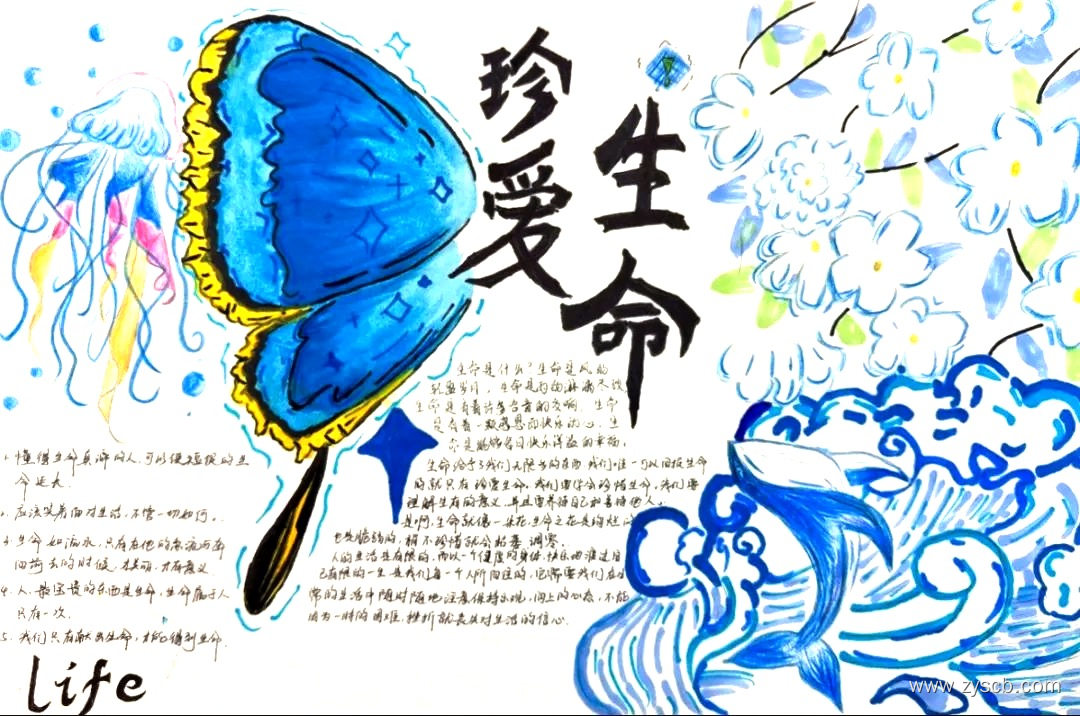 珍爱
生命
生命是什么?生命是风的
轻盈岁月,生命是雨的淋漓尽致
生命是有着许多含音的交响,生命
是有着一颗感恩而快乐的心,生
命是能够每日快乐洋溢的幸福,
生命给予了我们无限多的东西,我们唯一可以回报生命
的就只有珍爱生命,我们要学会珍惜生命,我们要
理解生存的意义,并且要养活自己和善待他人。
是啊,生命就像一朵花,生命之花是绚烂的
也是脆弱的,稍不珍惜就会枯萎、凋零。
人的生活是有限的,而以一个健康的身体,快乐地渡过自
己有限的一生是我们每一个人所向往的,它需要我们在日
常的生活中随时随地注意保持乐观、向上的心态,不能
因为一时的困难、挫折就丧失对生活的信心.
1.懂得生命真谛的人,可以使短促的生
命延长.
2.应该笑着面对生活,不管一切如何。
3.生命如流水,只有在他的急流而奔
向前去的时候,才美丽,才有意义
4.人最宝贵的东西是生命,生命属于人
只有一次.
5.我们只有献出生命,才能得到生命.
life
www.zyscb.com